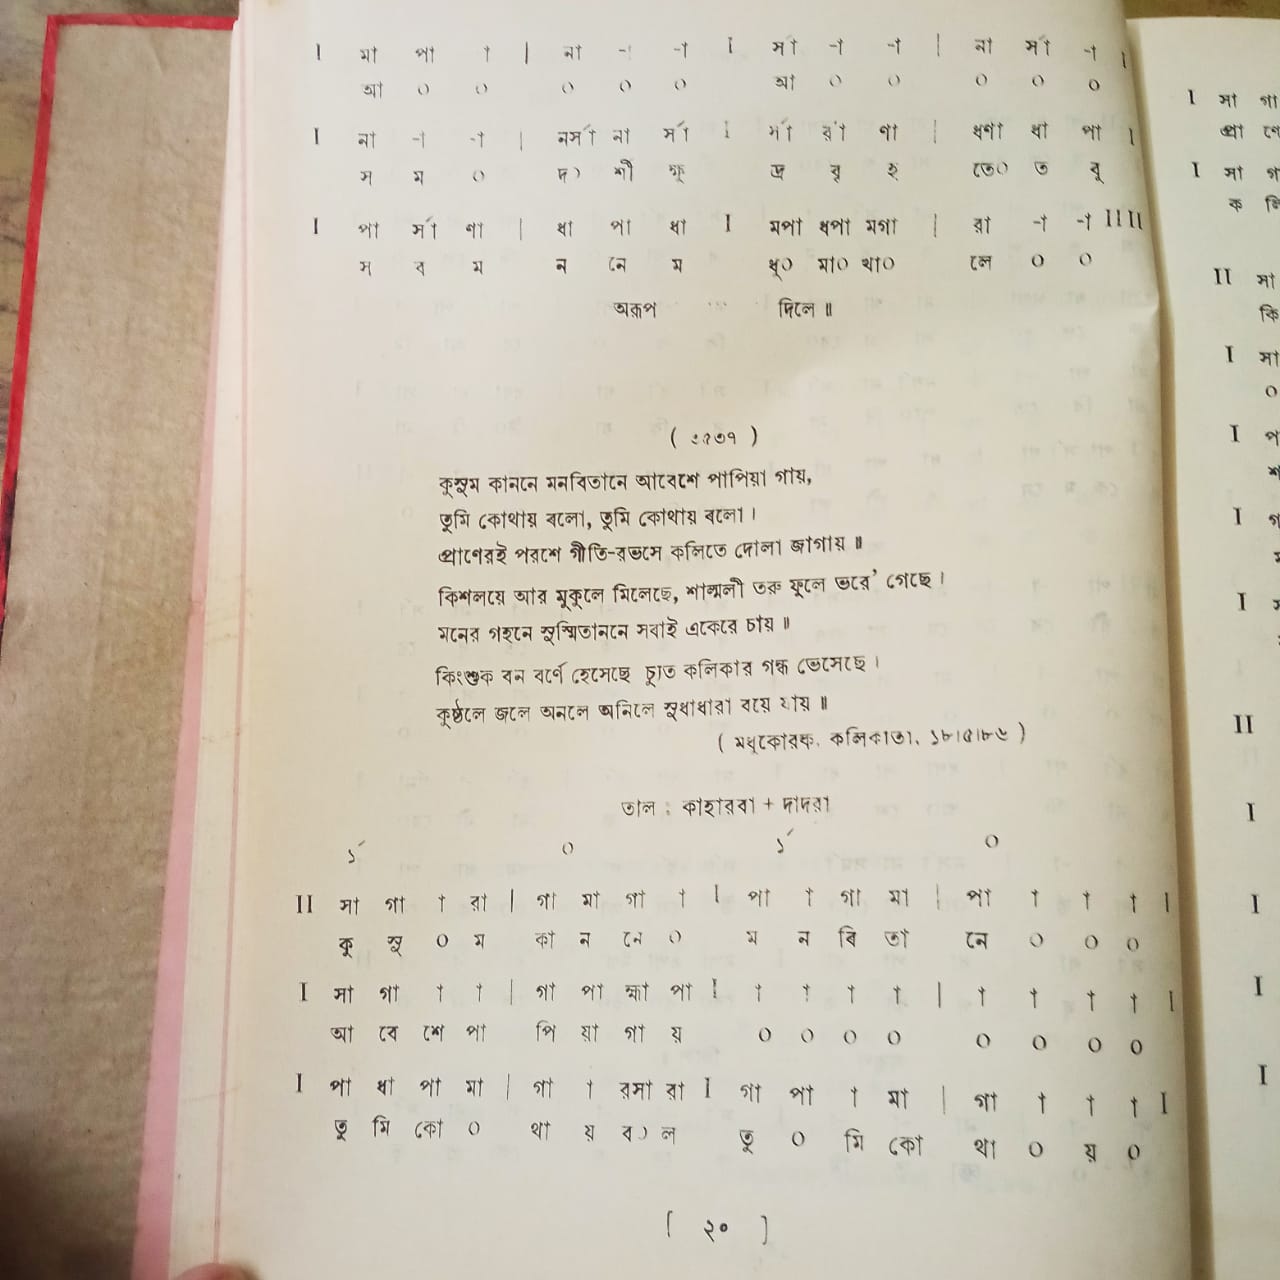 I মা পা া | না -া -া I র্সা -া -া | না র্সা -া I
আ ০ ০ ০ ০ ০ আ ০ ০ ০ ০ ০
I না -া -া | নর্সা না র্সা I র্মা র্রা ণা | ধণা ধা পা I
স ম ০ দ০ র্শী ক্ষু দ্র বৃ হ তে০ ত বু
I পা র্সা ণা | ধা পা ধা I মপা ধপা মগা | রা -া -া II II
স ব ম ন নে ম ধু০ মা০ খা০ লে ০ ০
অরূপ ... দিলে ॥
কুসুম কাননে মনবিতানে আবেশে পাপিয়া গায়,
তুমি কোথায় বলো, তুমি কোথায় বলো।
প্রাণেরই পরশে গীতি-রভসে কলিতে দোলা জাগায়॥
কিশলয়ে আর মুকুলে মিলেছে, শাল্মলী তরু ফুলে ভরে’ গেছে।
মনের গহনে সুস্মিতাননে সবাই একেরে চায়॥
কিংশুক বন বর্ণে হেসেছে চ্যুত কলিকার গন্ধ ভেসেছে।
জলে অনলে অনিলে সুধাধারা বয়ে যায়॥
( মধুকোরক, কলিকাতা, ১৮।৫।৮৬ )
তাল : কাহারবা + দাদরা
১´ ০ ১´ ০
II সা গা া রা | গা মা গা া I পা া গা মা | পা া া া I
কু সু ০ ম কা ন নে ০ ম ন বি তা নে ০ ০ ০
I সা গা া া | গা পা হ্মা পা I া া া া | া া া া I
আ বে শে পা পি য়া গা য় ০ ০ ০ ০ ০ ০ ০ ০
I পা ধা পা মা | গা া রসা রা I গা পা া মা | গা া া া I
তু মি কো ০ থা য় ব০ ল তু ০ মি কো থা ০ য় ০
[ ২০ ]
I সা গা
প্রা ণে
I সা
ক
II সা
কি
I সা
০
I প
I
I
II
I
I
I
I